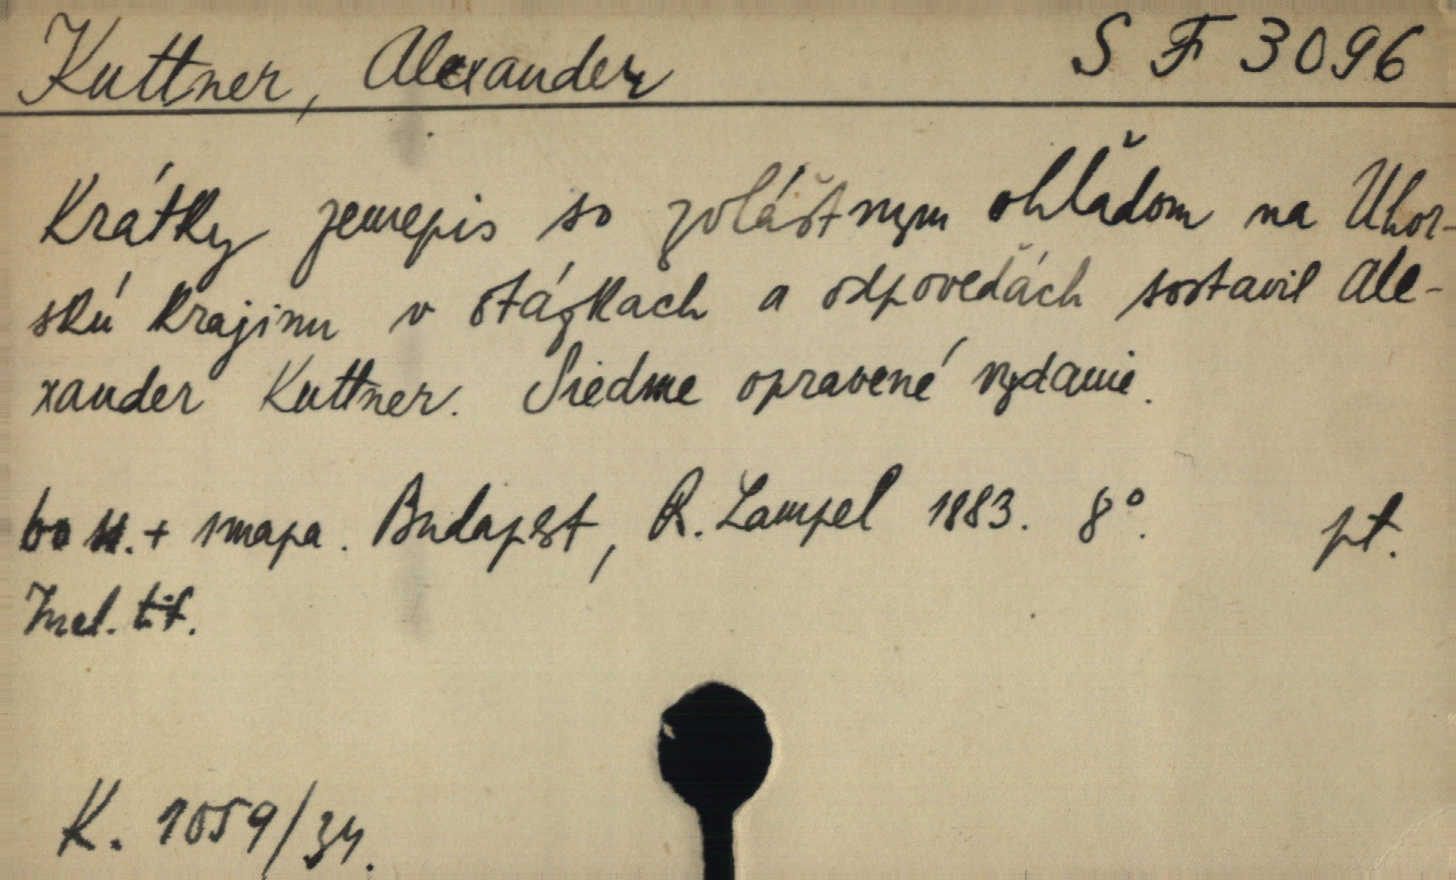 Kuttner, Alexander S F 3096
Krátky zemepis so zvláštnym ohľadom na Uhor-
skú krajinu v otázkach a odpoveďách sostavil Ale-
xander Kuttner. Siedme opravené vydanie.
60 st. + 1 mapa. Budapest, R. Lampel 1883. 8°. pt.
tit.
K. 1059/34.